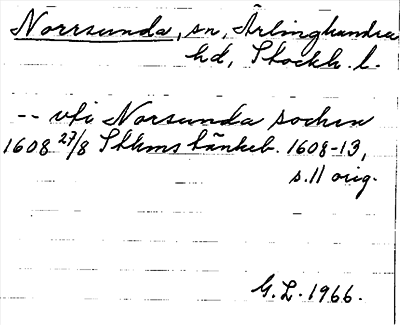 Norrsunda, sn, Ärlinghundra
hd, Stockh. l.
-- vti Norsunda sochn
1608 27/8 Sthlms tänkeb. 1608-13,
s. 11 orig.
G. L. 1966.